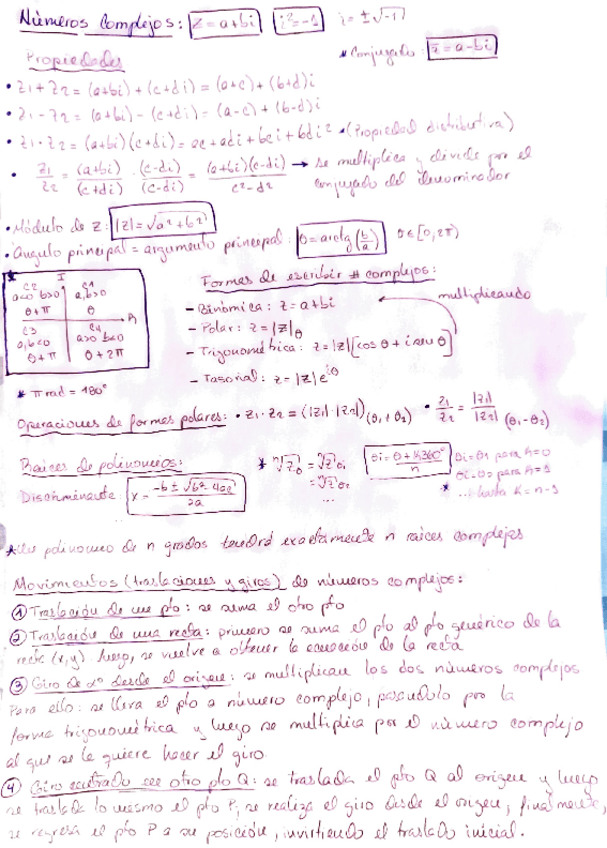 Números Complejos: z = a+bi   i² = -1   i = ±√-1
* Conjugado: z̄ = a-bi
Propiedades
• z1 + z2 = (a+bi) + (c+di) = (a+c) + (b+d)i
• z1 - z2 = (a+bi) - (c+di) = (a-c) + (b-d)i
• z1 · z2 = (a+bi)(c+di) = ac + adi + bci + bdi² * (Propiedad distributiva)
• z1/z2 = (a+bi)/(c+di) · (c-di)/(c-di) = (a+bi)(c-di)/c²-d² → se multiplica y divide por el
conjugado del denominador
• Módulo de z: |z| = √a²+b²
• Angulo principal = argumento principal: θ = arctg(b/a)   θ∈[0,2π)
I
C2 a<0 b>0 θ+π
C1 a,b>0 θ
R
C3 a,b<0 θ+π
C4 a>0 b<0 θ+2π
* π rad = 180°
Formas de escribir # complejos:
- Binómica: z = a+bi
multiplicando
- Polar: z = |z|θ
- Trigonométrica: z = |z|[cos θ + i sen θ]
- z = |z|e^iθ
Operaciones de formas polares: • z1 · z2 = (|z1|·|z2|)(θ1+θ2)   • z1/z2 = |z1|/|z2| (θ1-θ2)
Raices de polinomios:
* ⁿ√z0 = ⁿ√z θ1
= ⁿ√z θ2
...
θi = θ + k360°/n
θi = θ1 para k=0
θi = θ2 para k=1
* ... hasta k = n-1
Discriminante: x = -b ± √b²-4ac / 2a
*Un polinomio de n grados tendrá exactamente n raices complejas
Movimientos (traslaciones y giros) de números complejos:
① Traslación de un pto: se suma el otro pto
② Traslación de una recta: primero se suma el pto al pto genérico de la
recta (x,y). Luego, se vuelve a obtener la ecuación de la recta
③ Giro de α° desde el origen: se multiplican los dos números complejos
Para ello: se lleva el pto a número complejo, pasandolo por la
forma trigonométrica y luego se multiplica por el número complejo
al que se le quiere hacer el giro.
④ Giro centrado en otro pto Q: se traslada el pto Q al origen y luego
se traslada lo mismo el pto P, se realiza el giro desde el origen, finalmente,
se regresa el pto P a su posición, invirtiendo el traslado inicial.